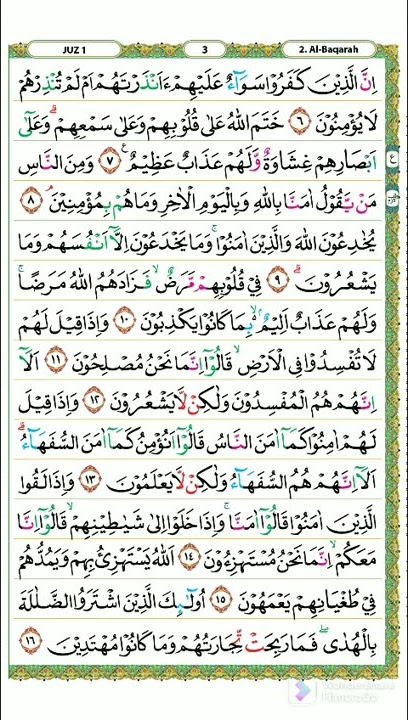 JUZ 1
3
2. Al-Baqarah
اِنَّ الَّذِيْنَ كَفَرُوْا سَوَاۤءٌ عَلَيْهِمْ ءَاَنْذَرْتَهُمْ اَمْ لَمْ تُنْذِرْهُمْ
لَا يُؤْمِنُوْنَ ٦ خَتَمَ اللّٰهُ عَلٰى قُلُوْبِهِمْ وَعَلٰى سَمْعِهِمْ ۗ وَعَلٰٓى
اَبْصَارِهِمْ غِشَاوَةٌ وَّلَهُمْ عَذَابٌ عَظِيْمٌ ࣖ ٧ وَمِنَ النَّاسِ
مَنْ يَّقُوْلُ اٰمَنَّا بِاللّٰهِ وَبِالْيَوْمِ الْاٰخِرِ وَمَا هُمْ بِمُؤْمِنِيْنَ ۘ ٨
يُخٰدِعُوْنَ اللّٰهَ وَالَّذِيْنَ اٰمَنُوْا ۚ وَمَا يَخْدَعُوْنَ اِلَّآ اَنْفُسَهُمْ وَمَا
يَشْعُرُوْنَ ۗ ٩ فِيْ قُلُوْبِهِمْ مَّرَضٌ ۙ فَزَادَهُمُ اللّٰهُ مَرَضًا ۚ
وَلَهُمْ عَذَابٌ اَلِيْمٌ ۢ ۙ بِمَا كَانُوْا يَكْذِبُوْنَ ١٠ وَاِذَا قِيْلَ لَهُمْ
لَا تُفْسِدُوْا فِى الْاَرْضِ ۙ قَالُوْٓا اِنَّمَا نَحْنُ مُصْلِحُوْنَ ١١ اَلَآ
اِنَّهُمْ هُمُ الْمُفْسِدُوْنَ وَلٰكِنْ لَّا يَشْعُرُوْنَ ١٢ وَاِذَا قِيْلَ
لَهُمْ اٰمِنُوْا كَمَآ اٰمَنَ النَّاسُ قَالُوْٓا اَنُؤْمِنُ كَمَآ اٰمَنَ السُّفَهَاۤءُ ۗ
اَلَآ اِنَّهُمْ هُمُ السُّفَهَاۤءُ وَلٰكِنْ لَّا يَعْلَمُوْنَ ١٣ وَاِذَا لَقُوا
الَّذِيْنَ اٰمَنُوْا قَالُوْٓا اٰمَنَّا ۚ وَاِذَا خَلَوْا اِلٰى شَيٰطِيْنِهِمْ ۙ قَالُوْٓا اِنَّا
مَعَكُمْ ۙ اِنَّمَا نَحْنُ مُسْتَهْزِءُوْنَ ١٤ اَللّٰهُ يَسْتَهْزِئُ بِهِمْ وَيَمُدُّهُمْ
فِيْ طُغْيَانِهِمْ يَعْمَهُوْنَ ١٥ اُولٰۤىِٕكَ الَّذِيْنَ اشْتَرَوُا الضَّلٰلَةَ
بِالْهُدٰى ۖ فَمَا رَبِحَتْ تِّجَارَتُهُمْ وَمَا كَانُوْا مُهْتَدِيْنَ ١٦